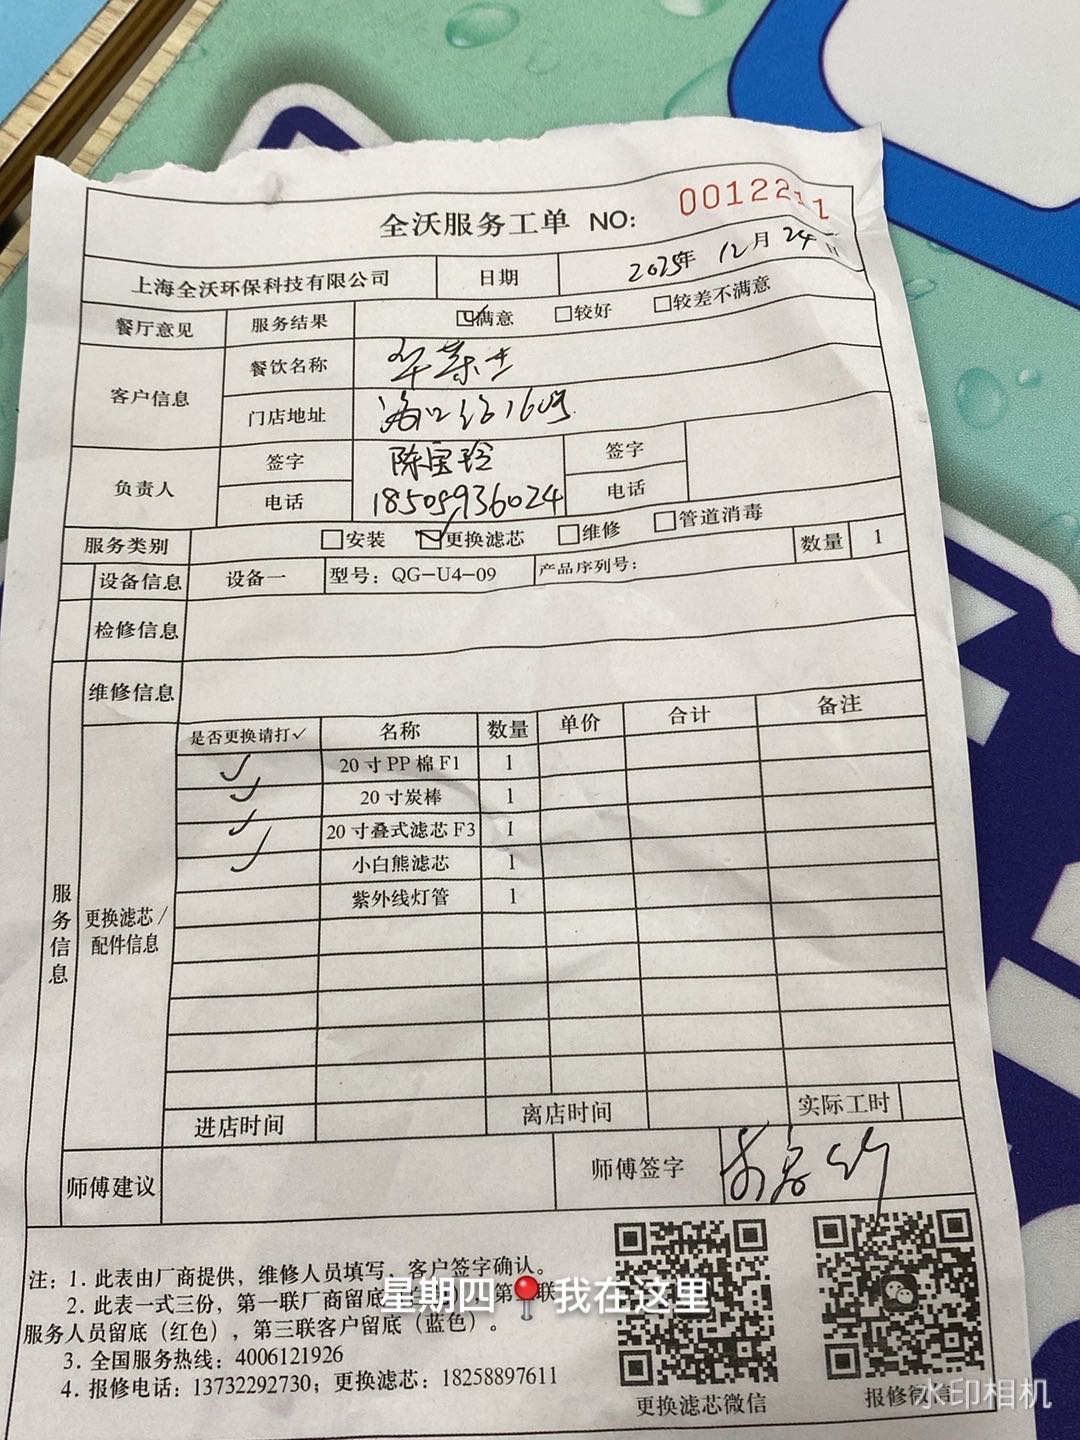 全沃服务工单 NO:
上海全沃环保科技有限公司 日期 2025年 12月 24日
餐厅意见 服务结果 满意 较好 较差不满意
客户信息 餐饮名称 华莱士
门店地址
负责人 签字 陈宝玲 签字
电话 18505936024 电话
服务类别 安装 更换滤芯 维修 管道消毒
设备信息 设备一 型号：QG-U4-09 产品序列号： 数量 1
检修信息
维修信息
服务信息
更换滤芯/配件信息
是否更换请打✓ 名称 数量 单价 合计 备注
✓ 20寸PP棉F1 1
✓ 20寸炭棒 1
✓ 20寸叠式滤芯F3 1
✓ 小白熊滤芯 1
紫外线灯管 1
进店时间 离店时间 实际工时
师傅建议 师傅签字
注：1. 此表由厂商提供，维修人员填写，客户签字确认。
2. 此表一式三份，第一联厂商留底
服务人员留底（红色），第三联客户留底（蓝色）。
3. 全国服务热线：4006121926
4. 报修电话：13732292730；更换滤芯：18258897611
更换滤芯微信
报修微信
星期四📍我在这里
水印相机